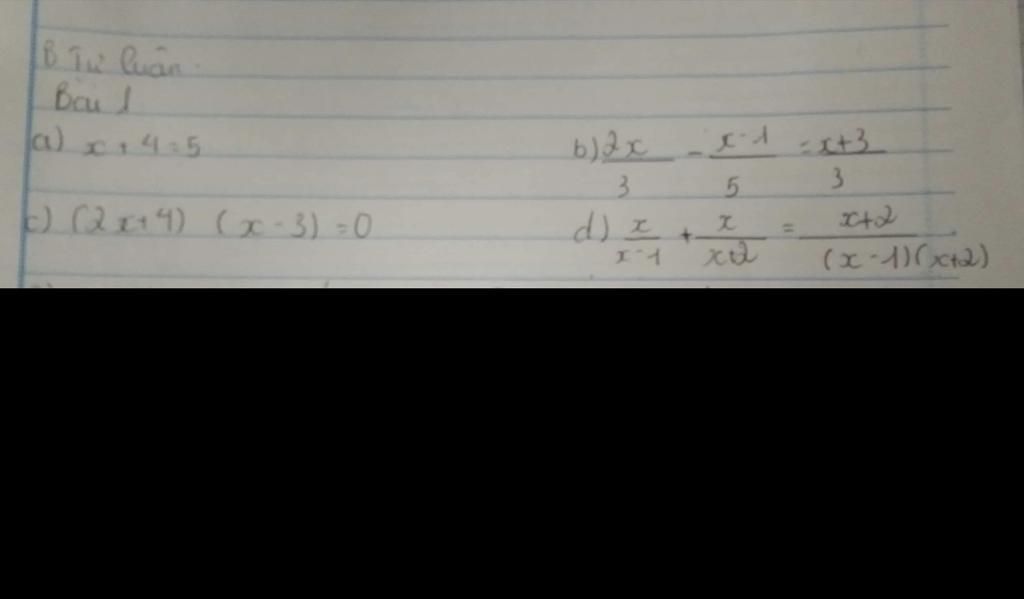 B Tự luận.
Bài 1
a) x + 4 = 5
b) 2x/3 - x-1/5 = x+3/3
c) (2x+4) (x-3) = 0
d) x/x-1 + x/x+2 = x+2/(x-1)(x+2)